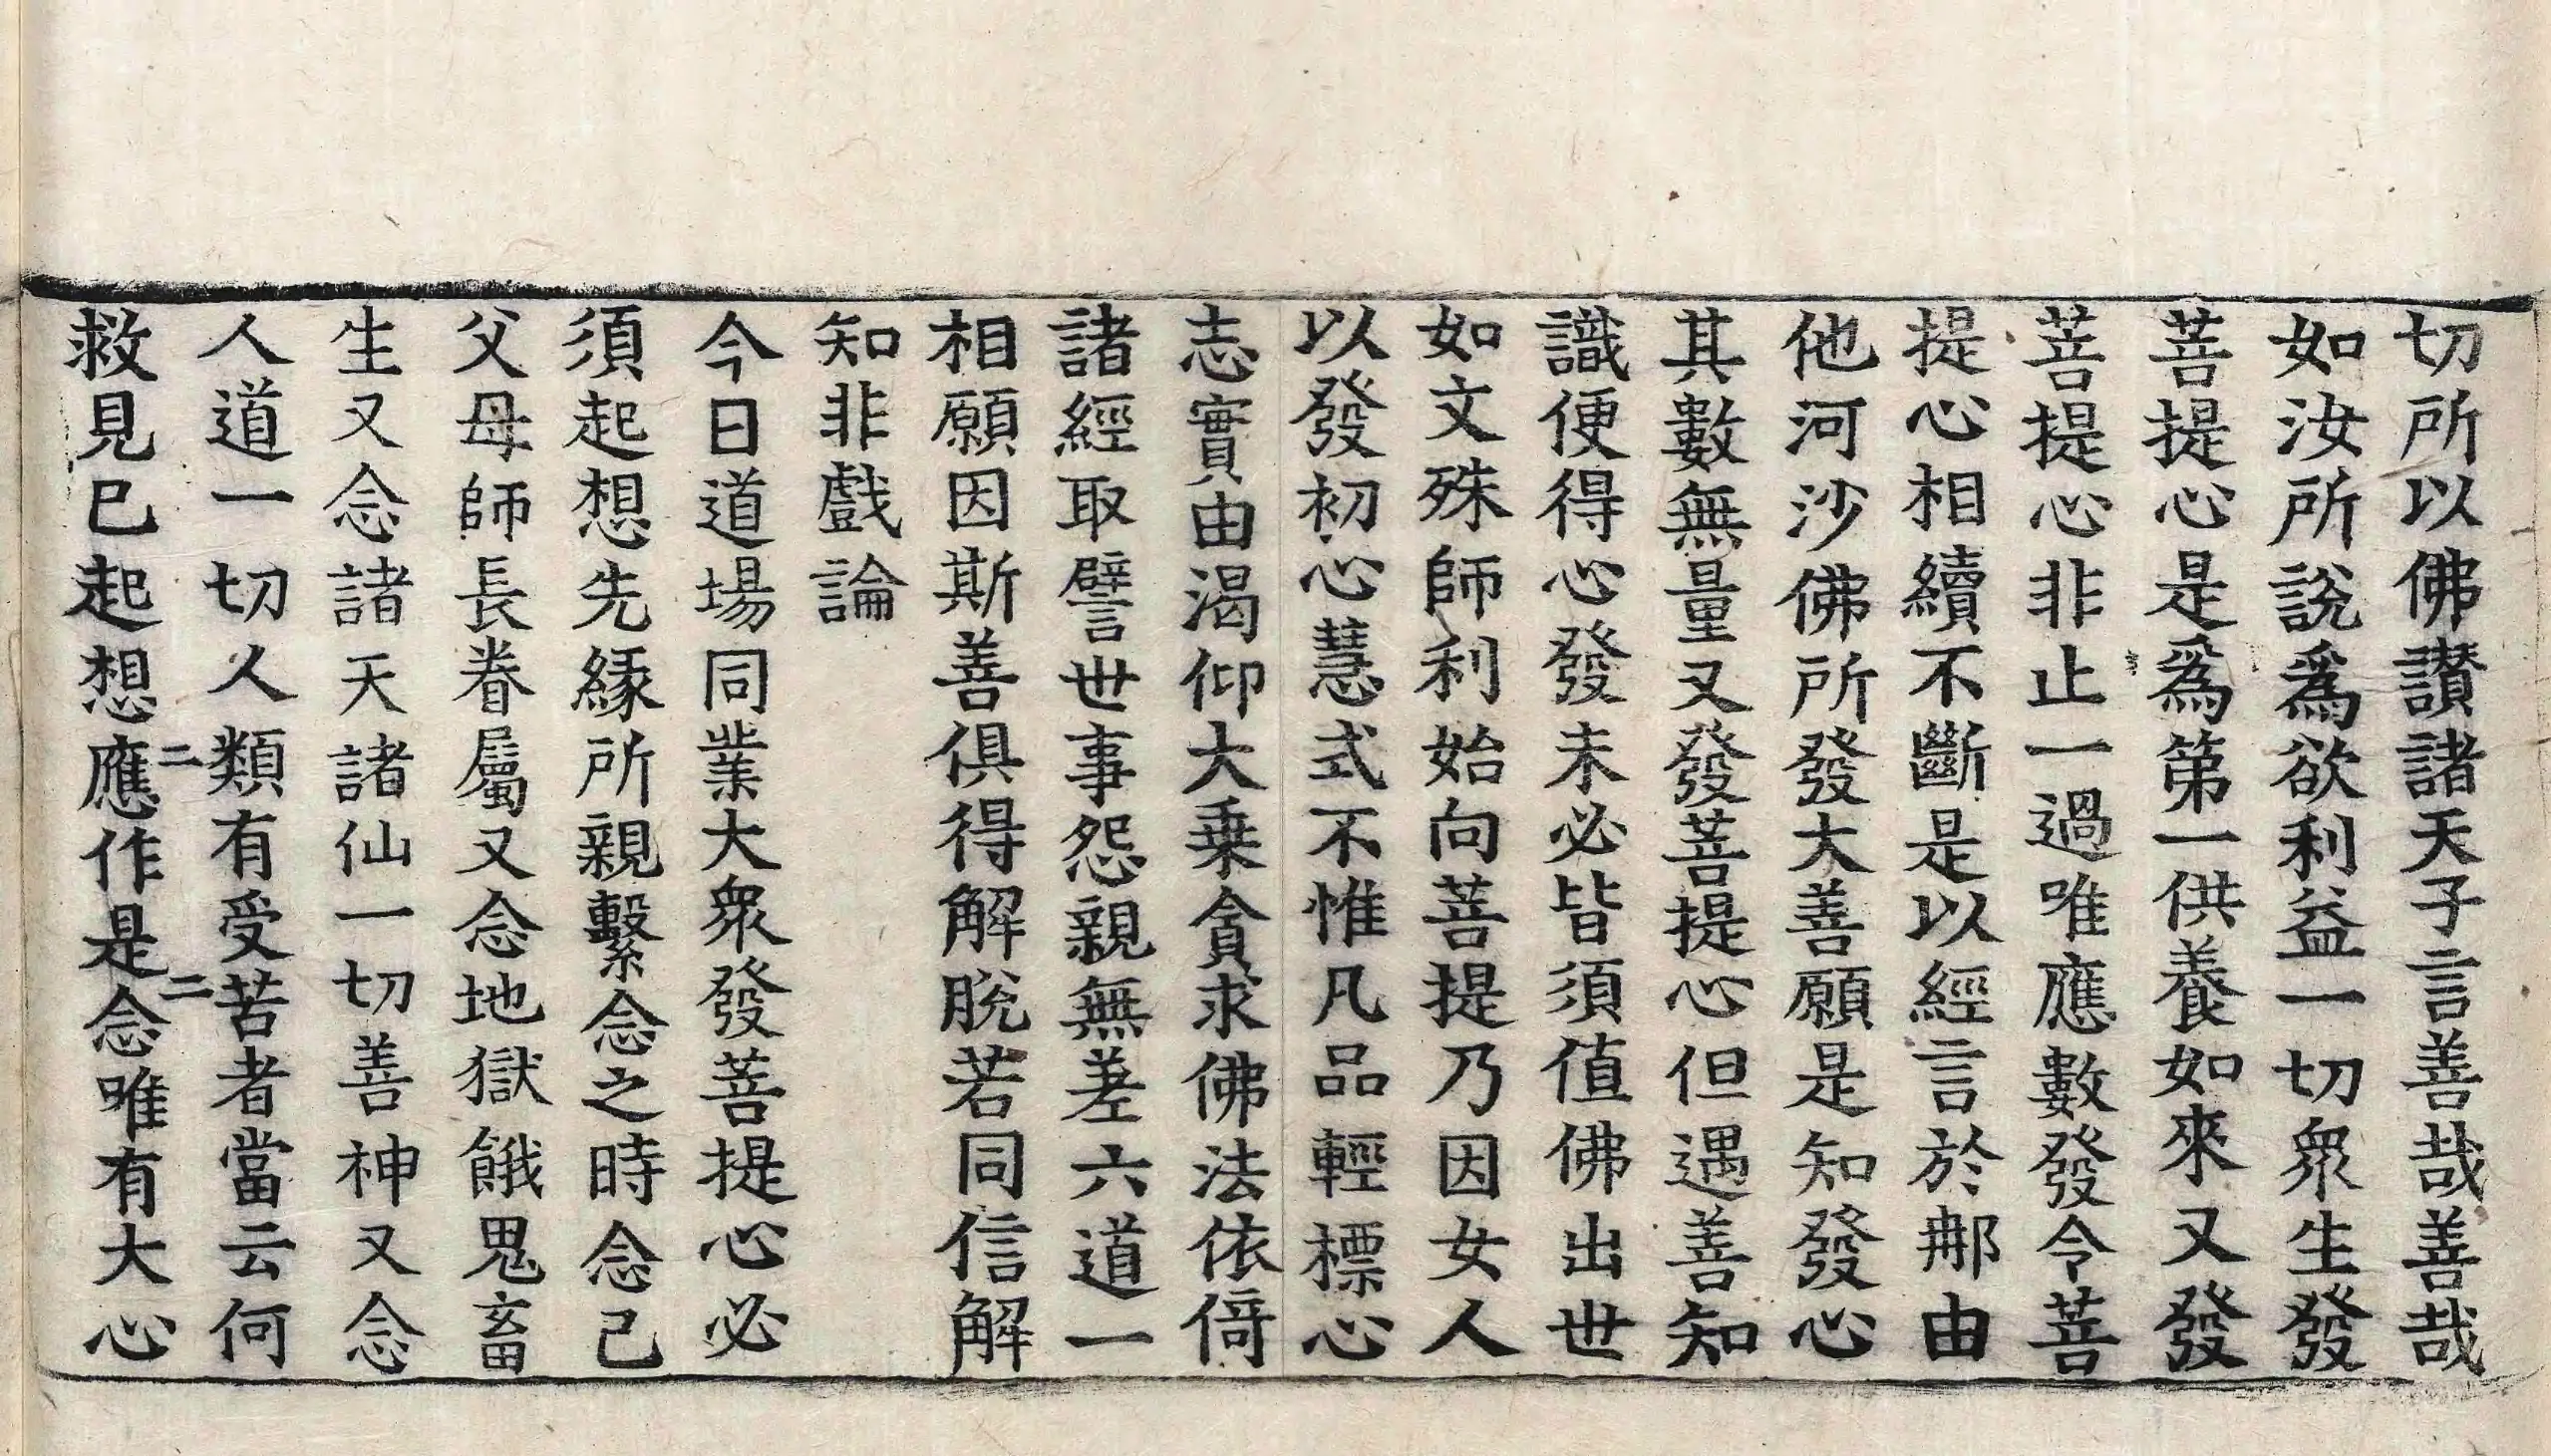 切所以佛讃諸天子言善哉善哉
如汝所說爲欲利益一切衆生發
菩提心是爲第一供養如來又發
菩提心非止一過唯應數發令菩
提心相續不斷是以經言於𨙻由
他河沙佛所發大善願是知發心
其數無量又發菩提心但遇善知
識便得心發未必皆須值佛出世
如文殊師利始向菩提乃因女人
以發初心慧式不惟凡品輕標心
志實由渴仰大乗貪求佛法依倚
諸經取譬世事怨親無差六道一
相願因斯善俱得解脫若同信解
知非戲論
今日道場同業大衆發菩提心必
須起想先緣所親繫念之時念己
父母師長眷屬又念地獄餓鬼畜
生又念諸天諸仙一切善神又念
人道一切人類有受苦者當云何
救見已起想應作是念唯有大心
二
二